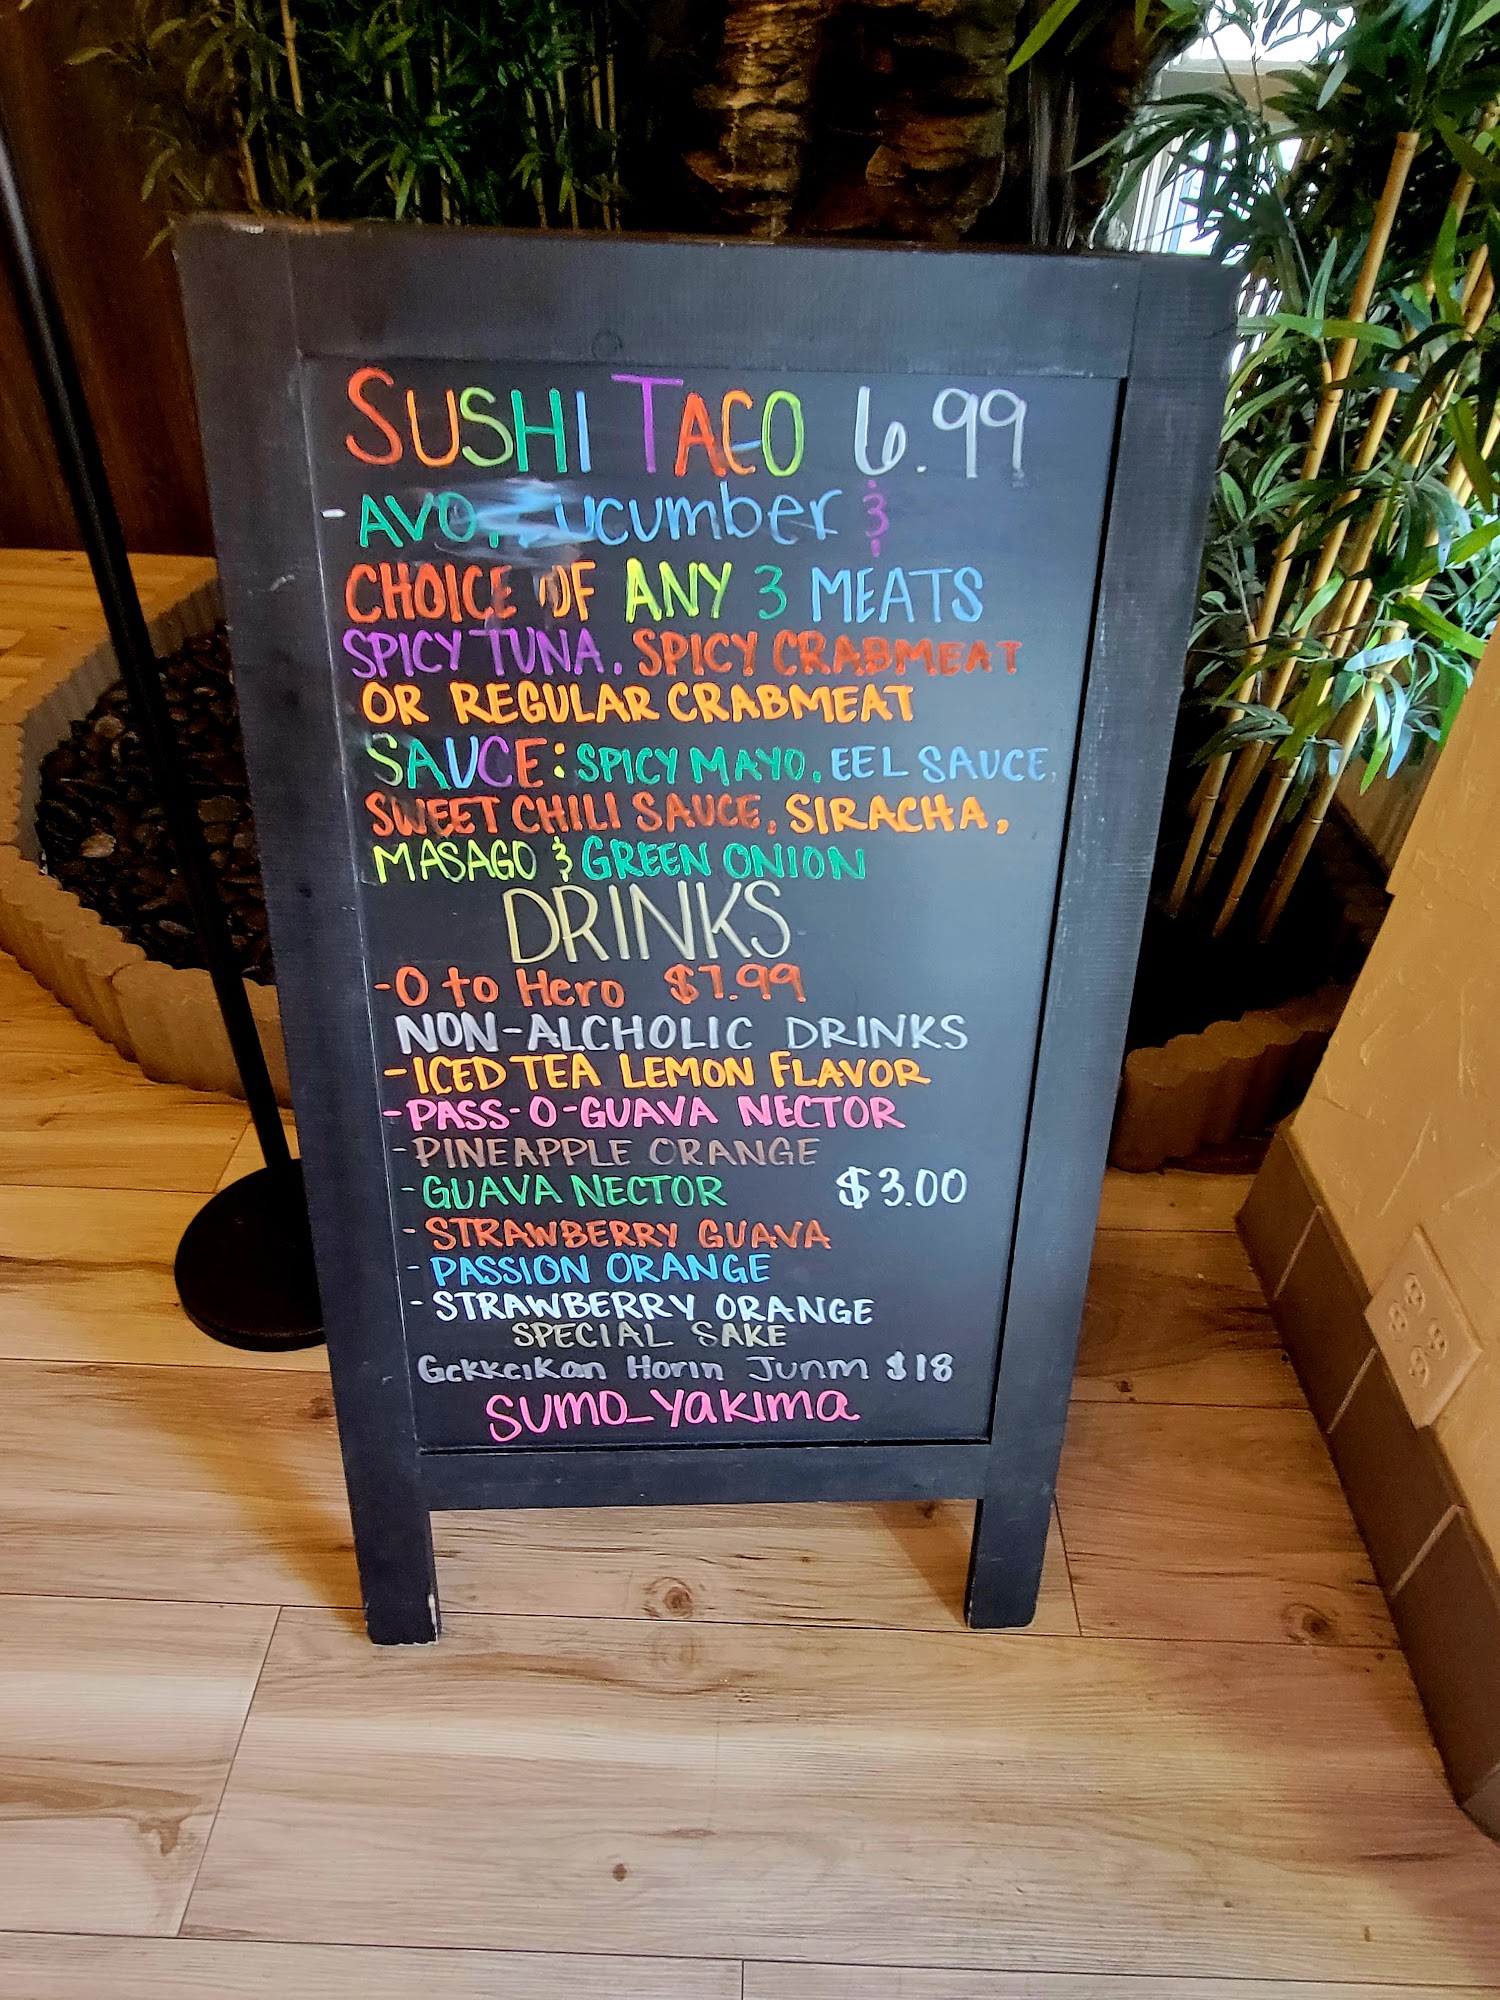 SUSHI TACO 6.99
- AVO. Cucumber &
CHOICE OF ANY 3 MEATS
SPICY TUNA, SPICY CRABMEAT
OR REGULAR CRABMEAT
SAUCE: SPICY MAYO, EEL SAUCE,
SWEET CHILI SAUCE, SIRACHA,
MASAGO & GREEN ONION
DRINKS
- O to Hero $7.99
NON-ALCHOLIC DRINKS
- ICED TEA LEMON FLAVOR
- PASS-O-GUAVA NECTOR
- PINEAPPLE ORANGE
- GUAVA NECTOR $3.00
- STRAWBERRY GUAVA
- PASSION ORANGE
- STRAWBERRY ORANGE
SPECIAL SAKE
Gekkeikan Horin Junm $18
SUMO_Yakima